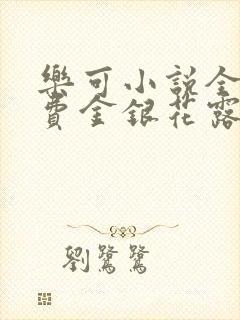 樂可小説全
費金銀花露
劉鷺鷺